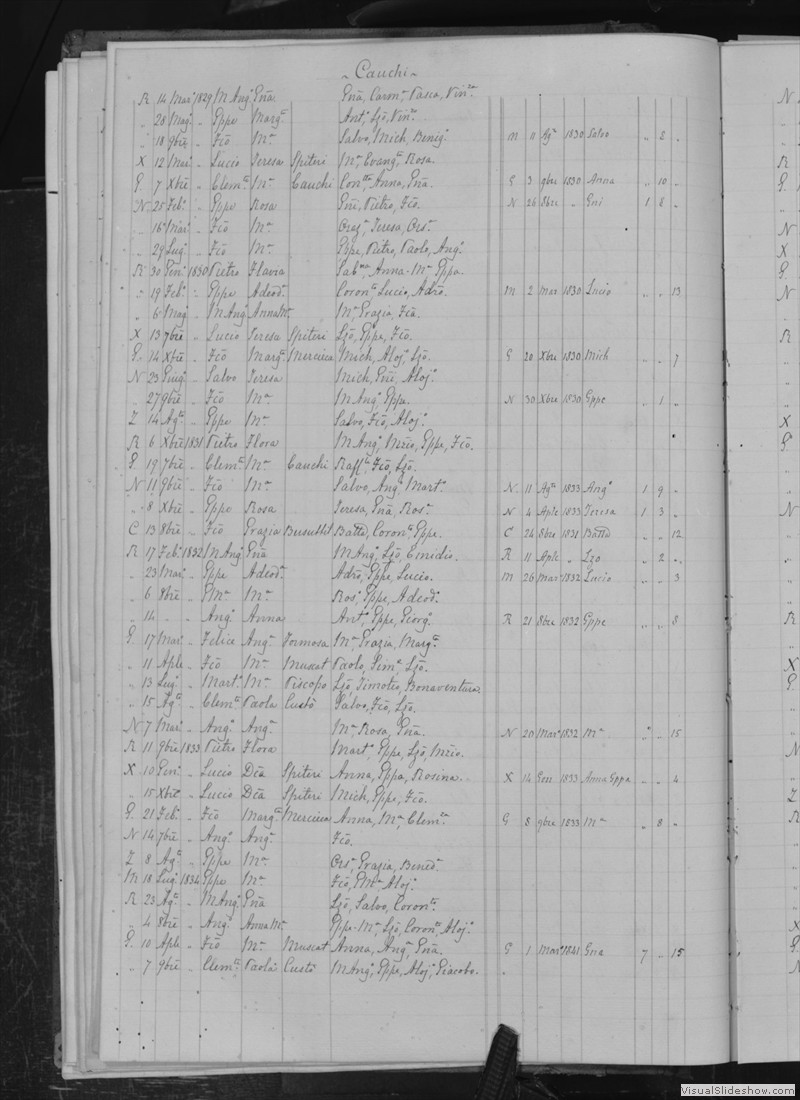 ~ Cauchi ~
R 14 Mar: 1829 M Ang: Gña Gña, Caron:, Pasca, Vin:
" 28 Mag: " Gppe Marg: Ant:, Lzō, Vin:
" 18 9bre " Fcō M: Salvo, Mich, Benig: M 11 Ag: 1830 Salvo " 2 "
X 12 Mar: " Lucio Teresa Spiteri M:, Evang:, Rosa.
G 7 Xbre " Clem: M: Cauchi Con:, Anna, Gña. G 3 9bre 1830 Anna " 10 "
N 25 Feb: " Gppe Rosa Gñi, Pietro, Fcō. N 26 8bre " Gni 1 8 "
" 16 Mar: " Fcō M: Teresa,
" 29 Lug: " Fcō M: Gppe, Pietro, Paolo, Ang:
R 30 Gen: 1830 Pietro Flavia Anna-M:, Gppa.
" 19 Feb: " Gppe Adeod: Coron:, Lucio, Adrō. M 2 Mar 1830 Lucio " " 13
" 6 Mag: " M Ang: Anna M: M:, Grazia, Fca.
X 13 7bre " Lucio Teresa Spiteri Lzō, Gppe, Fcō.
G 14 Xbre " Fcō Marg: Mercieca Mich, Aloj:, Lzō. G 20 Xbre 1830 Mich " " 7
N 23 Giug: " Salvo Teresa Mich, Gñi, Aloj:
" 27 9bre " Fcō M: M Ang:, Gppe. N 30 Xbre 1830 Gppe " 1 "
Z 14 Ag: " Gppe M: Salvo, Fcō, Aloj:
R 6 Xbre 1831 Pietro Flora M Ang:, Mzio, Gppe, Fcō.
G 19 7bre " Clem: M: Cauchi Raff:, Fcō, Lzō.
N 11 9bre " Fcō M: Salvo, Ang:, Mart: N 11 Ag: 1833 Ang: 1 9 "
" 8 Xbre " Gppe Rosa Teresa, Gña, Ros: N 4 Aple 1833 Teresa 1 3 "
C 13 8bre " Fcō Grazia Busuttil Batta, Coron:, Gppe. C 24 8bre 1831 Batta " " 12
R 17 Feb: 1832 M Ang: Gña M Ang:, Lzō, Emidio. R 11 Aple " Lzo " 2 "
" 23 Mar: " Gppe Adeod: Adrō, Gppe, Lucio. M 26 Mar: 1832 Lucio " " 3
" 6 8bre " M: Ros:, Gppe, Adeod:
" 14 " " Ang: Anna Ant:, Gppe, Giorg: R 21 8bre 1832 Gppe " " 8
G 17 Mar: " Felice Ang: Formosa M:, Grazia, Marg:
" 11 Aple " Fcō M: Muscat Paolo, Sem:, Lzō.
" 13 Lug: " Mart: M: Piscopo Lzō, Timoteo, Bonaventura.
" 15 Ag: " Clem: Paola Custò Salvo, Fcō, Lzō.
N 7 Mar: " Ang: Ang: M:, Rosa, Gña. N 20 Mar: 1832 M: " " 15
R 11 9bre 1833 Pietro Flora Mart:, Gppe, Lzō, Mzio.
X 10 Gen: " Lucio Dca Spiteri Anna, Gppa, Rosina. X 14 Gen 1833 Anna Gppa " " 4
" 15 Xbre " Lucio Dca Spiteri Mich, Gppe, Fcō.
G 21 Feb: " Fcō Marg: Mercieca Anna, M:, Clem: G 8 9bre 1833 M: " 8 "
N 14 7bre " Ang: Ang: Fcō.
Z 8 Ag: " Gppe M: Grazia, Bened:
M 18 Lug: 1834 Gppe M: Fcō, Aloj:
R 23 Ag: " M Ang: Gña Lzō, Salvo, Coron:
" 4 8bre " Ang: Anna M: Gppe-M:, Lzō, Coron:, Aloj:
G 10 Aple " Fcō M: Muscat Annea, Ang:, Gña. G 1 Mar: 1841 Gna 7 " 15
" 7 9bre " Clem: Paola Custò M Ang:, Gppe, Aloj:, Giacobo. "
VisualSlideshow.com